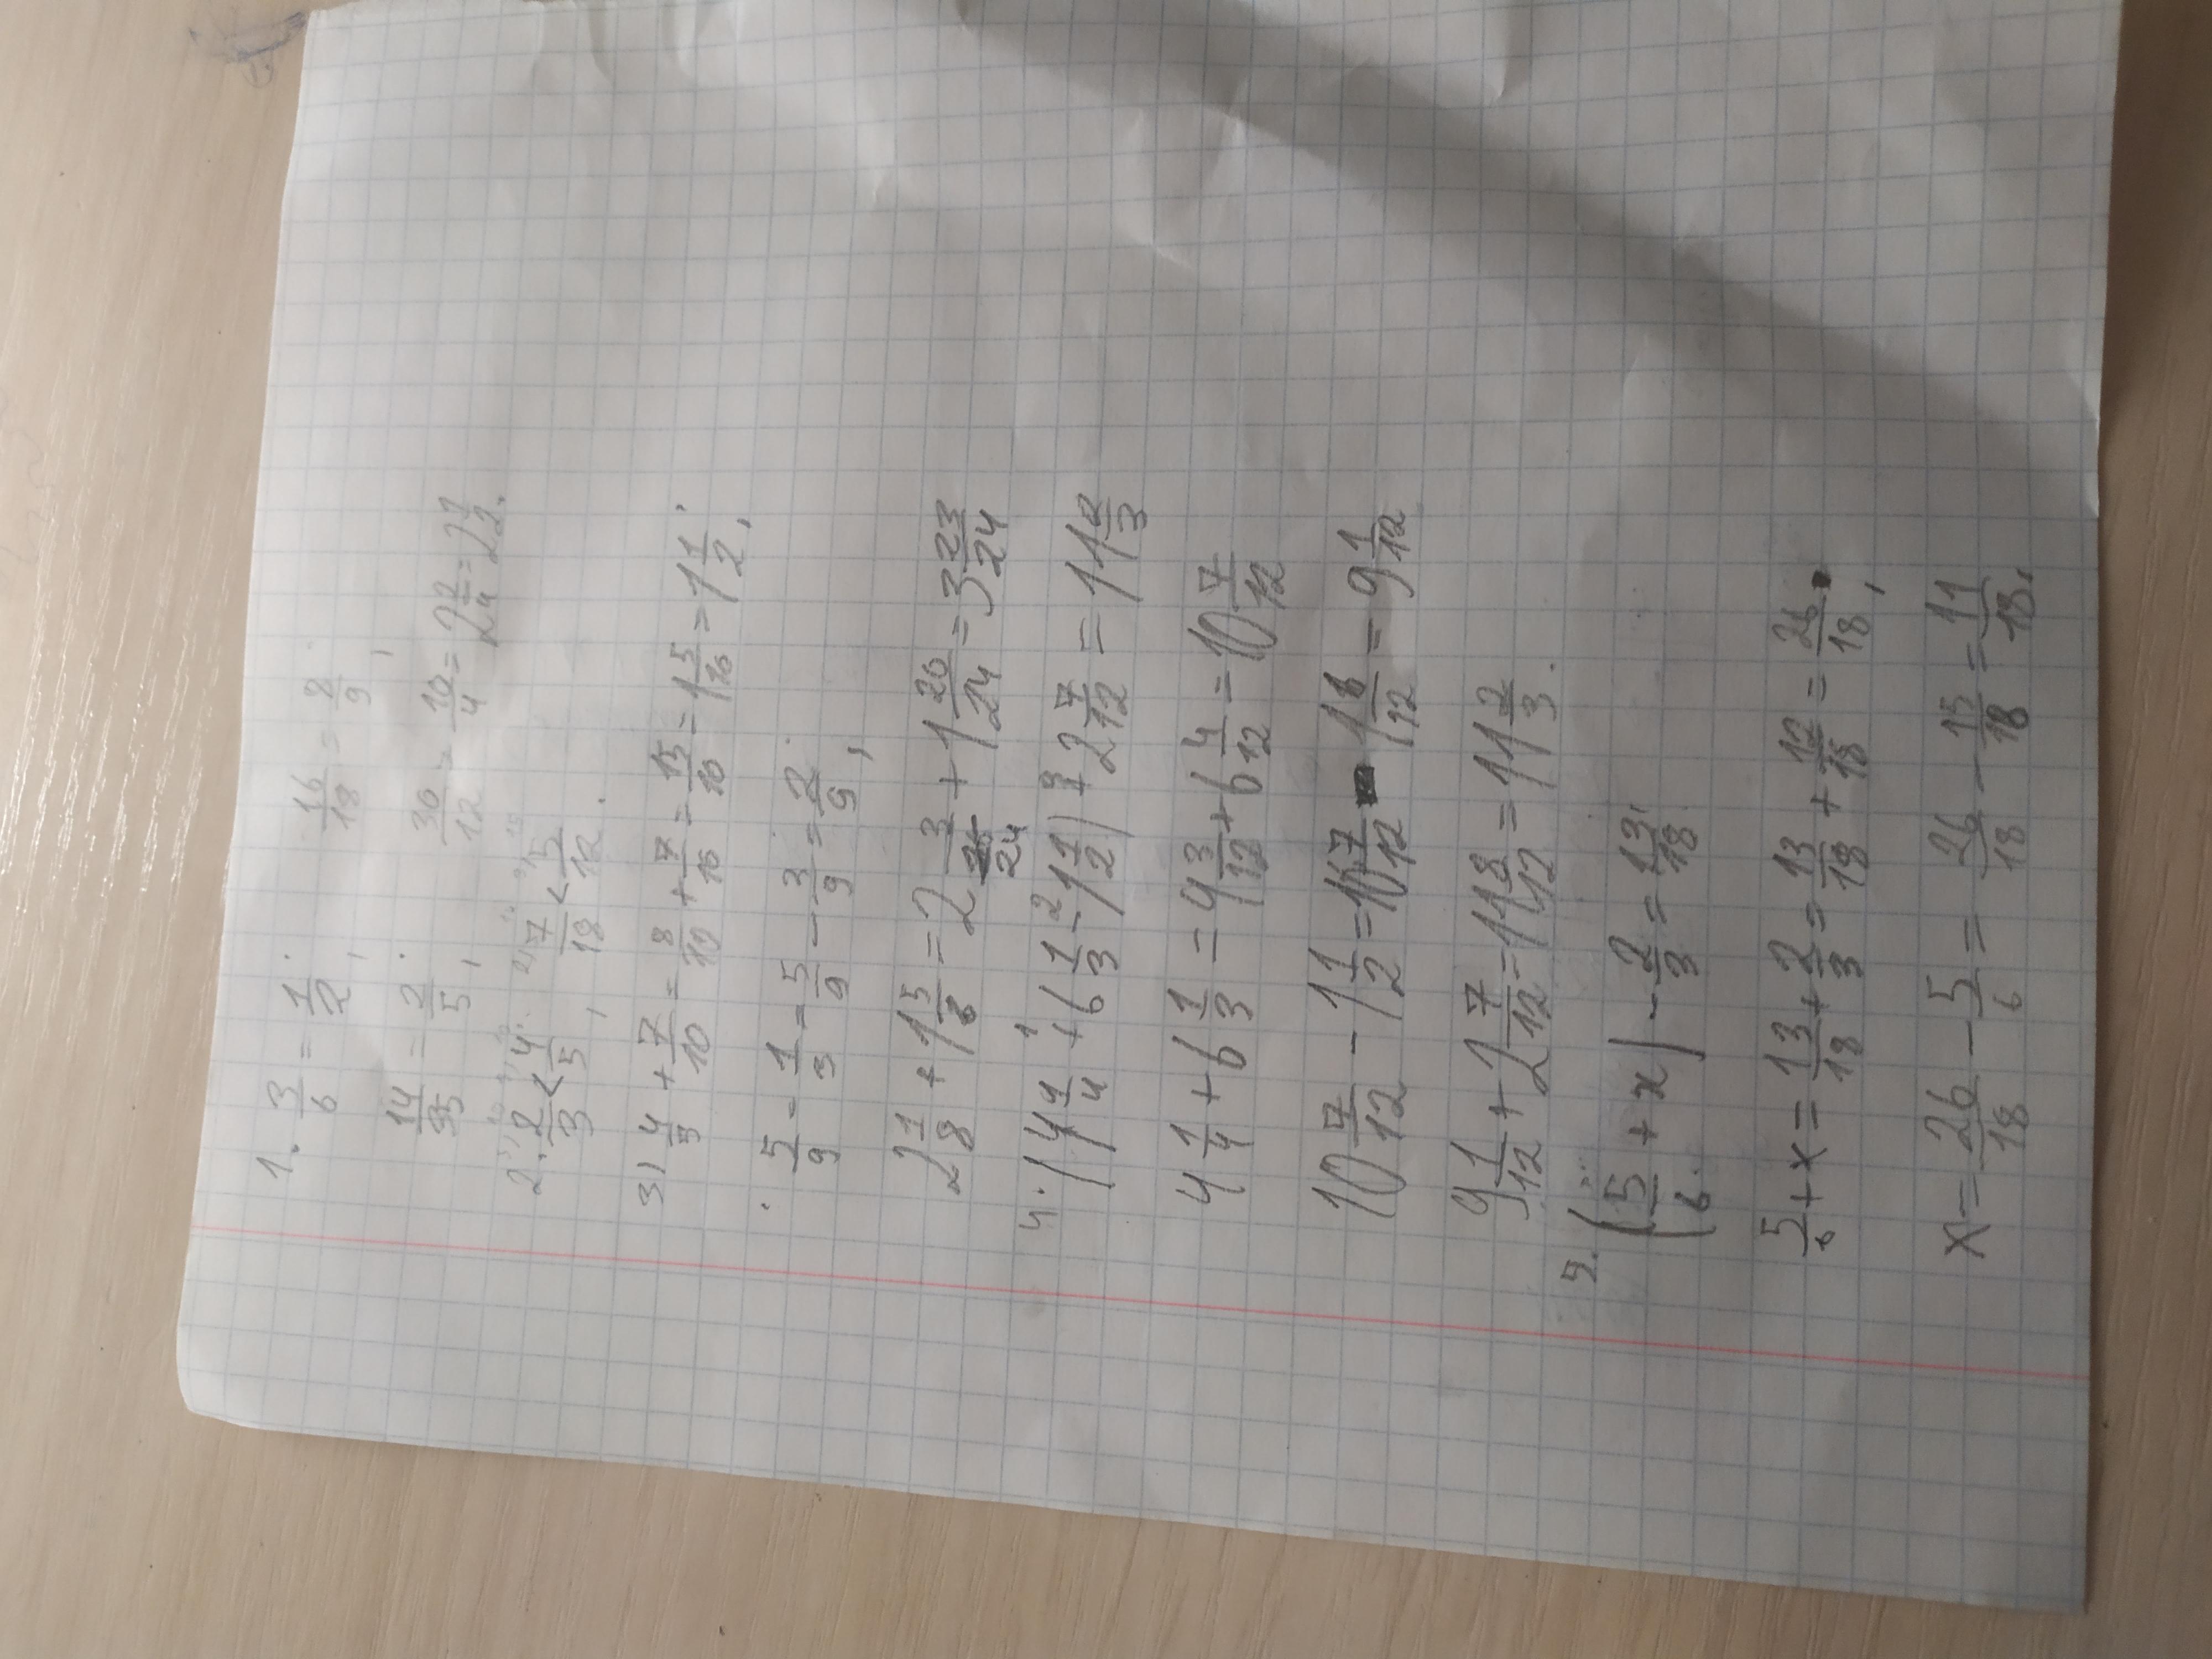 1. 3/6 = 1/2, 16/18 = 8/9,
14/35 = 2/5, 30/12 = 10/4 = 2 2/4 = 2 1/2.
2. 2/3 < 4/5, 7/18 < 5/12.
3) 4/5 + 7/10 = 8/10 + 7/10 = 15/10 = 1 5/10 = 1 1/2,
5/9 - 1/3 = 5/9 - 3/9 = 2/9,
2 1/8 + 1 5/6 = 2 3/24 + 1 20/24 = 3 23/24
4. (4 1/4 + 6 1/3 - 1 1/2) + 2 7/12 = 11 2/3
4 1/4 + 6 1/3 = 4 3/12 + 6 4/12 = 10 7/12
10 7/12 - 1 1/2 = 10 7/12 - 1 6/12 = 9 1/12
9 1/12 + 2 7/12 = 11 8/12 = 11 2/3.
5. (5/6 + x) - 2/3 = 13/18,
5/6 + x = 13/18 + 2/3 = 13/18 + 12/18 = 26/18,
x = 26/18 - 5/6 = 26/18 - 15/18 = 11/18,